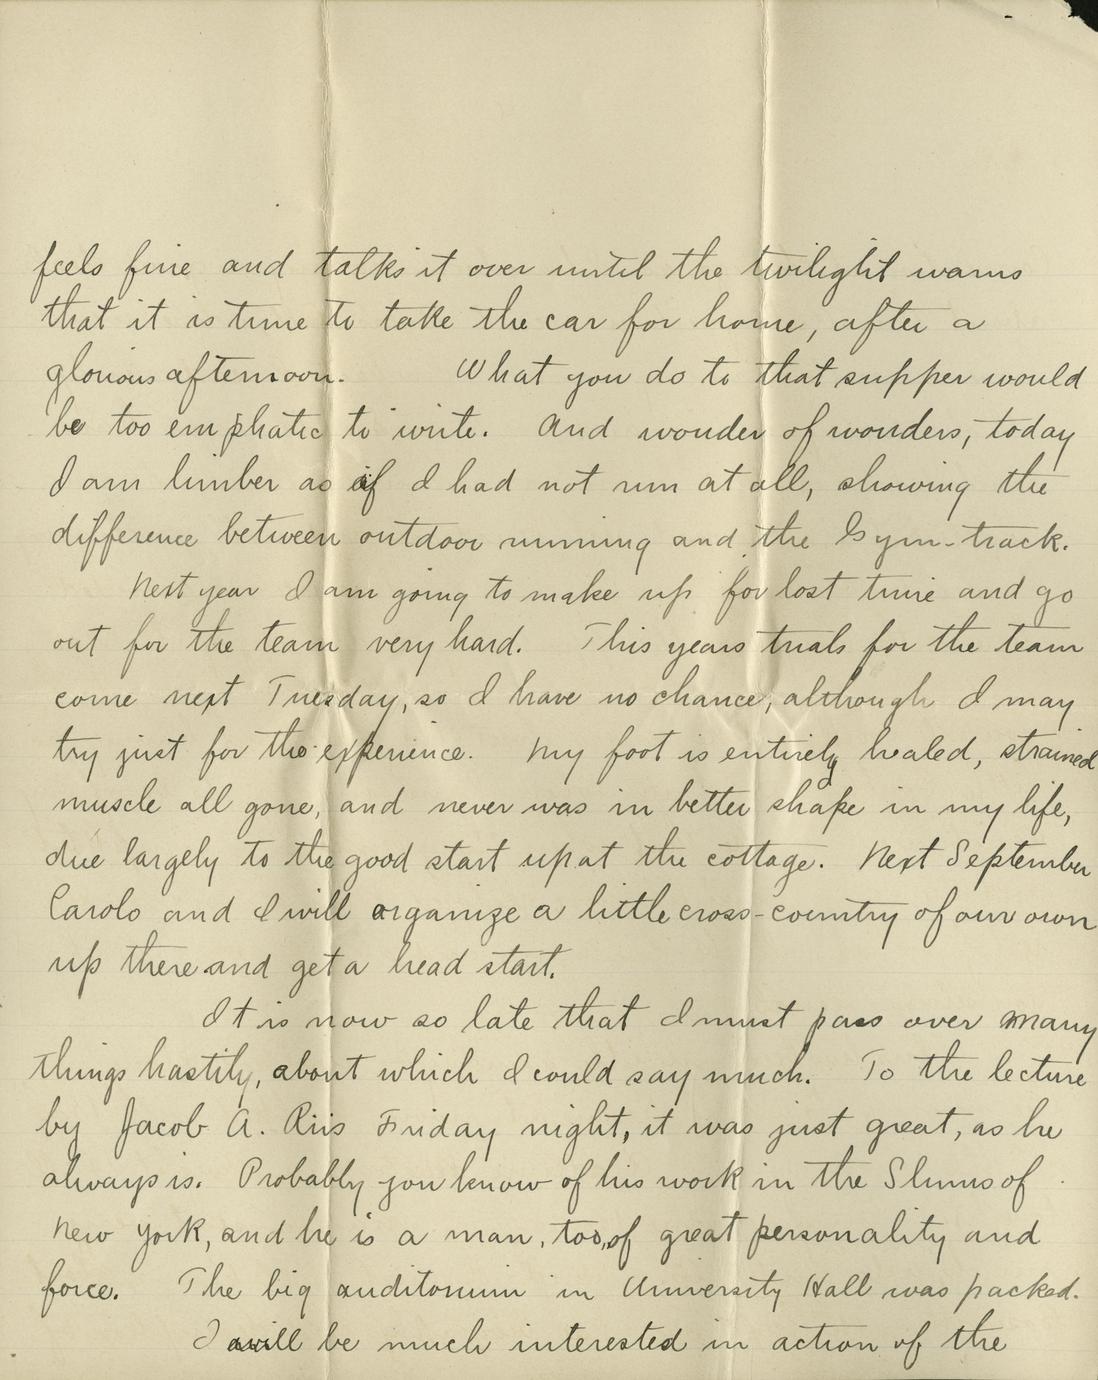 feels fine and talks it over until the twilight warns
that it is time to take the car for home, after a
glorious afternoon. What you do to that supper would
be too emphatic to write. And wonder of wonders, today
I am limber as if I had not run at all, showing the
difference between outdoor running and the Gym-track.
Next year I am going to make up for lost time and go
out for the team very hard. This years trials for the team
come next Tuesday, so I have no chance, although I may
try just for the experience. My foot is entirely healed, strained
muscle all gone, and never was in better shape in my life,
due largely to the good start up at the cottage. Next September
Carolo and I will organize a little cross-country of our own
up there and get a head start.
It is now so late that I must pass over many
things hastily, about which I could say much. To the lecture
by Jacob A. Riis Friday night, it was just great, as he
always is. Probably you know of his work in the Slums of
New York, and he is a man, too, of great personality and
force. The big auditorium in University Hall was packed.
I will be much interested in action of the